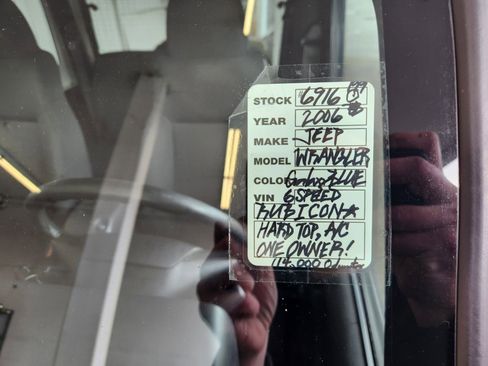 STOCK 6916
YEAR 2006
MAKE JEEP
MODEL WRANGLER
COLOR BLUE
VIN 6 SPEED
RUBICON★
HARD TOP, A/C
ONE OWNER!